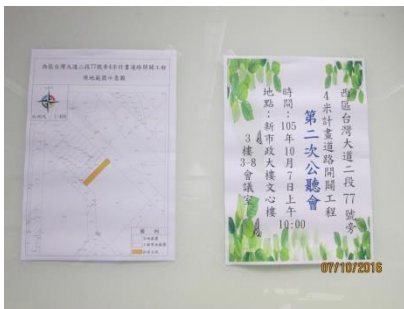 西區台灣大道二段77號旁4米計畫道路開闢工程
用地範圍示意圖
圖例
西區台灣大道二段77號旁
4米計畫道路開闢工程
第二次公聽會
時間：105年10月7日上午10:00
地點：新市政大樓文心樓
3樓3-8會議室
07/10/2016